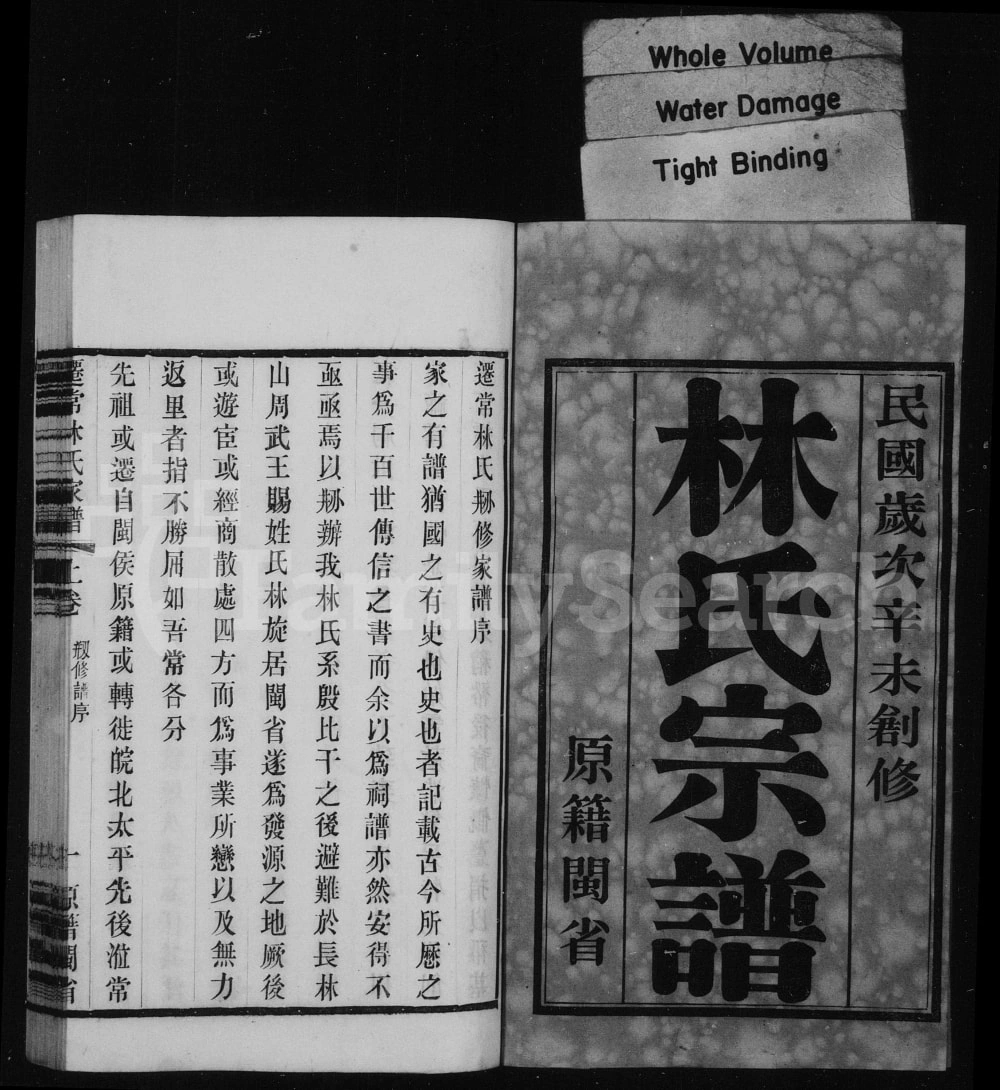 Whole Volume
Water Damage
Tight Binding
民國歲次辛未創修
林氏宗譜
原籍閩省
遷常林氏剏修家譜序
家之有譜猶國之有史也史也者記載古今所歷之
事爲千百世傳信之書而余以爲祠譜亦然安得不
亟亟焉以剏辦我林氏系殷比干之後避難於長林
山周武王賜姓氏林旋居閩省遂爲發源之地厥後
或遊宦或經商散處四方而爲事業所戀以及無力
返里者指不勝屈如吾常各分
先祖或遷自閩侯原籍或轉徙皖北太平先後涖常
遷常林氏家譜 上卷 剏修譜序 一 原籍閩省
FamilySearch